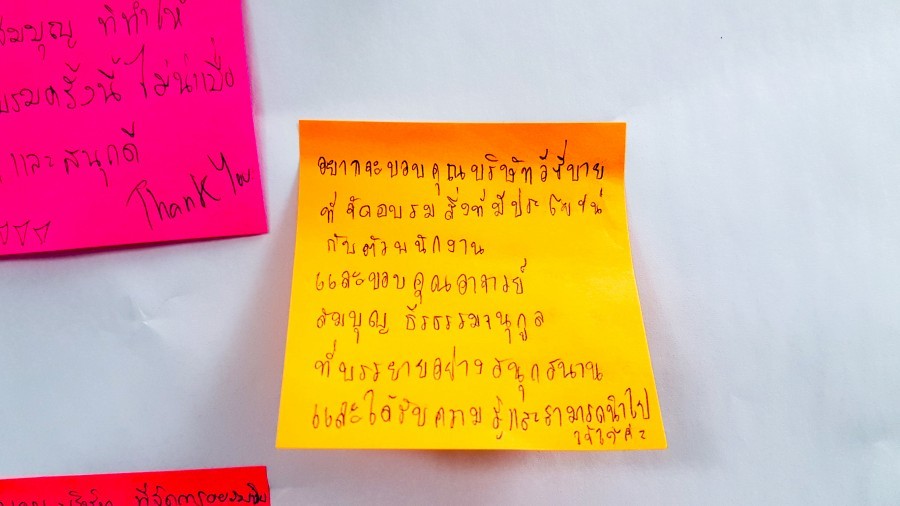 สมบุญ ที่ทำให้
อบรมครั้งนี้ ไม่น่าเบื่อ
และ สนุกดี
Thank You
อยากจะขอบคุณบริษัทอีซี่บาย
ที่จัดอบรม สิ่งที่มีประโยชน์
กับตัวพนักงาน
และขอบคุณอาจารย์
สมบุญ ธีรธรรมานุกูล
ที่บรรยายอย่างสนุกสนาน
และได้รับความรู้และสามารถนำไป
ใช้ได้ค่ะ